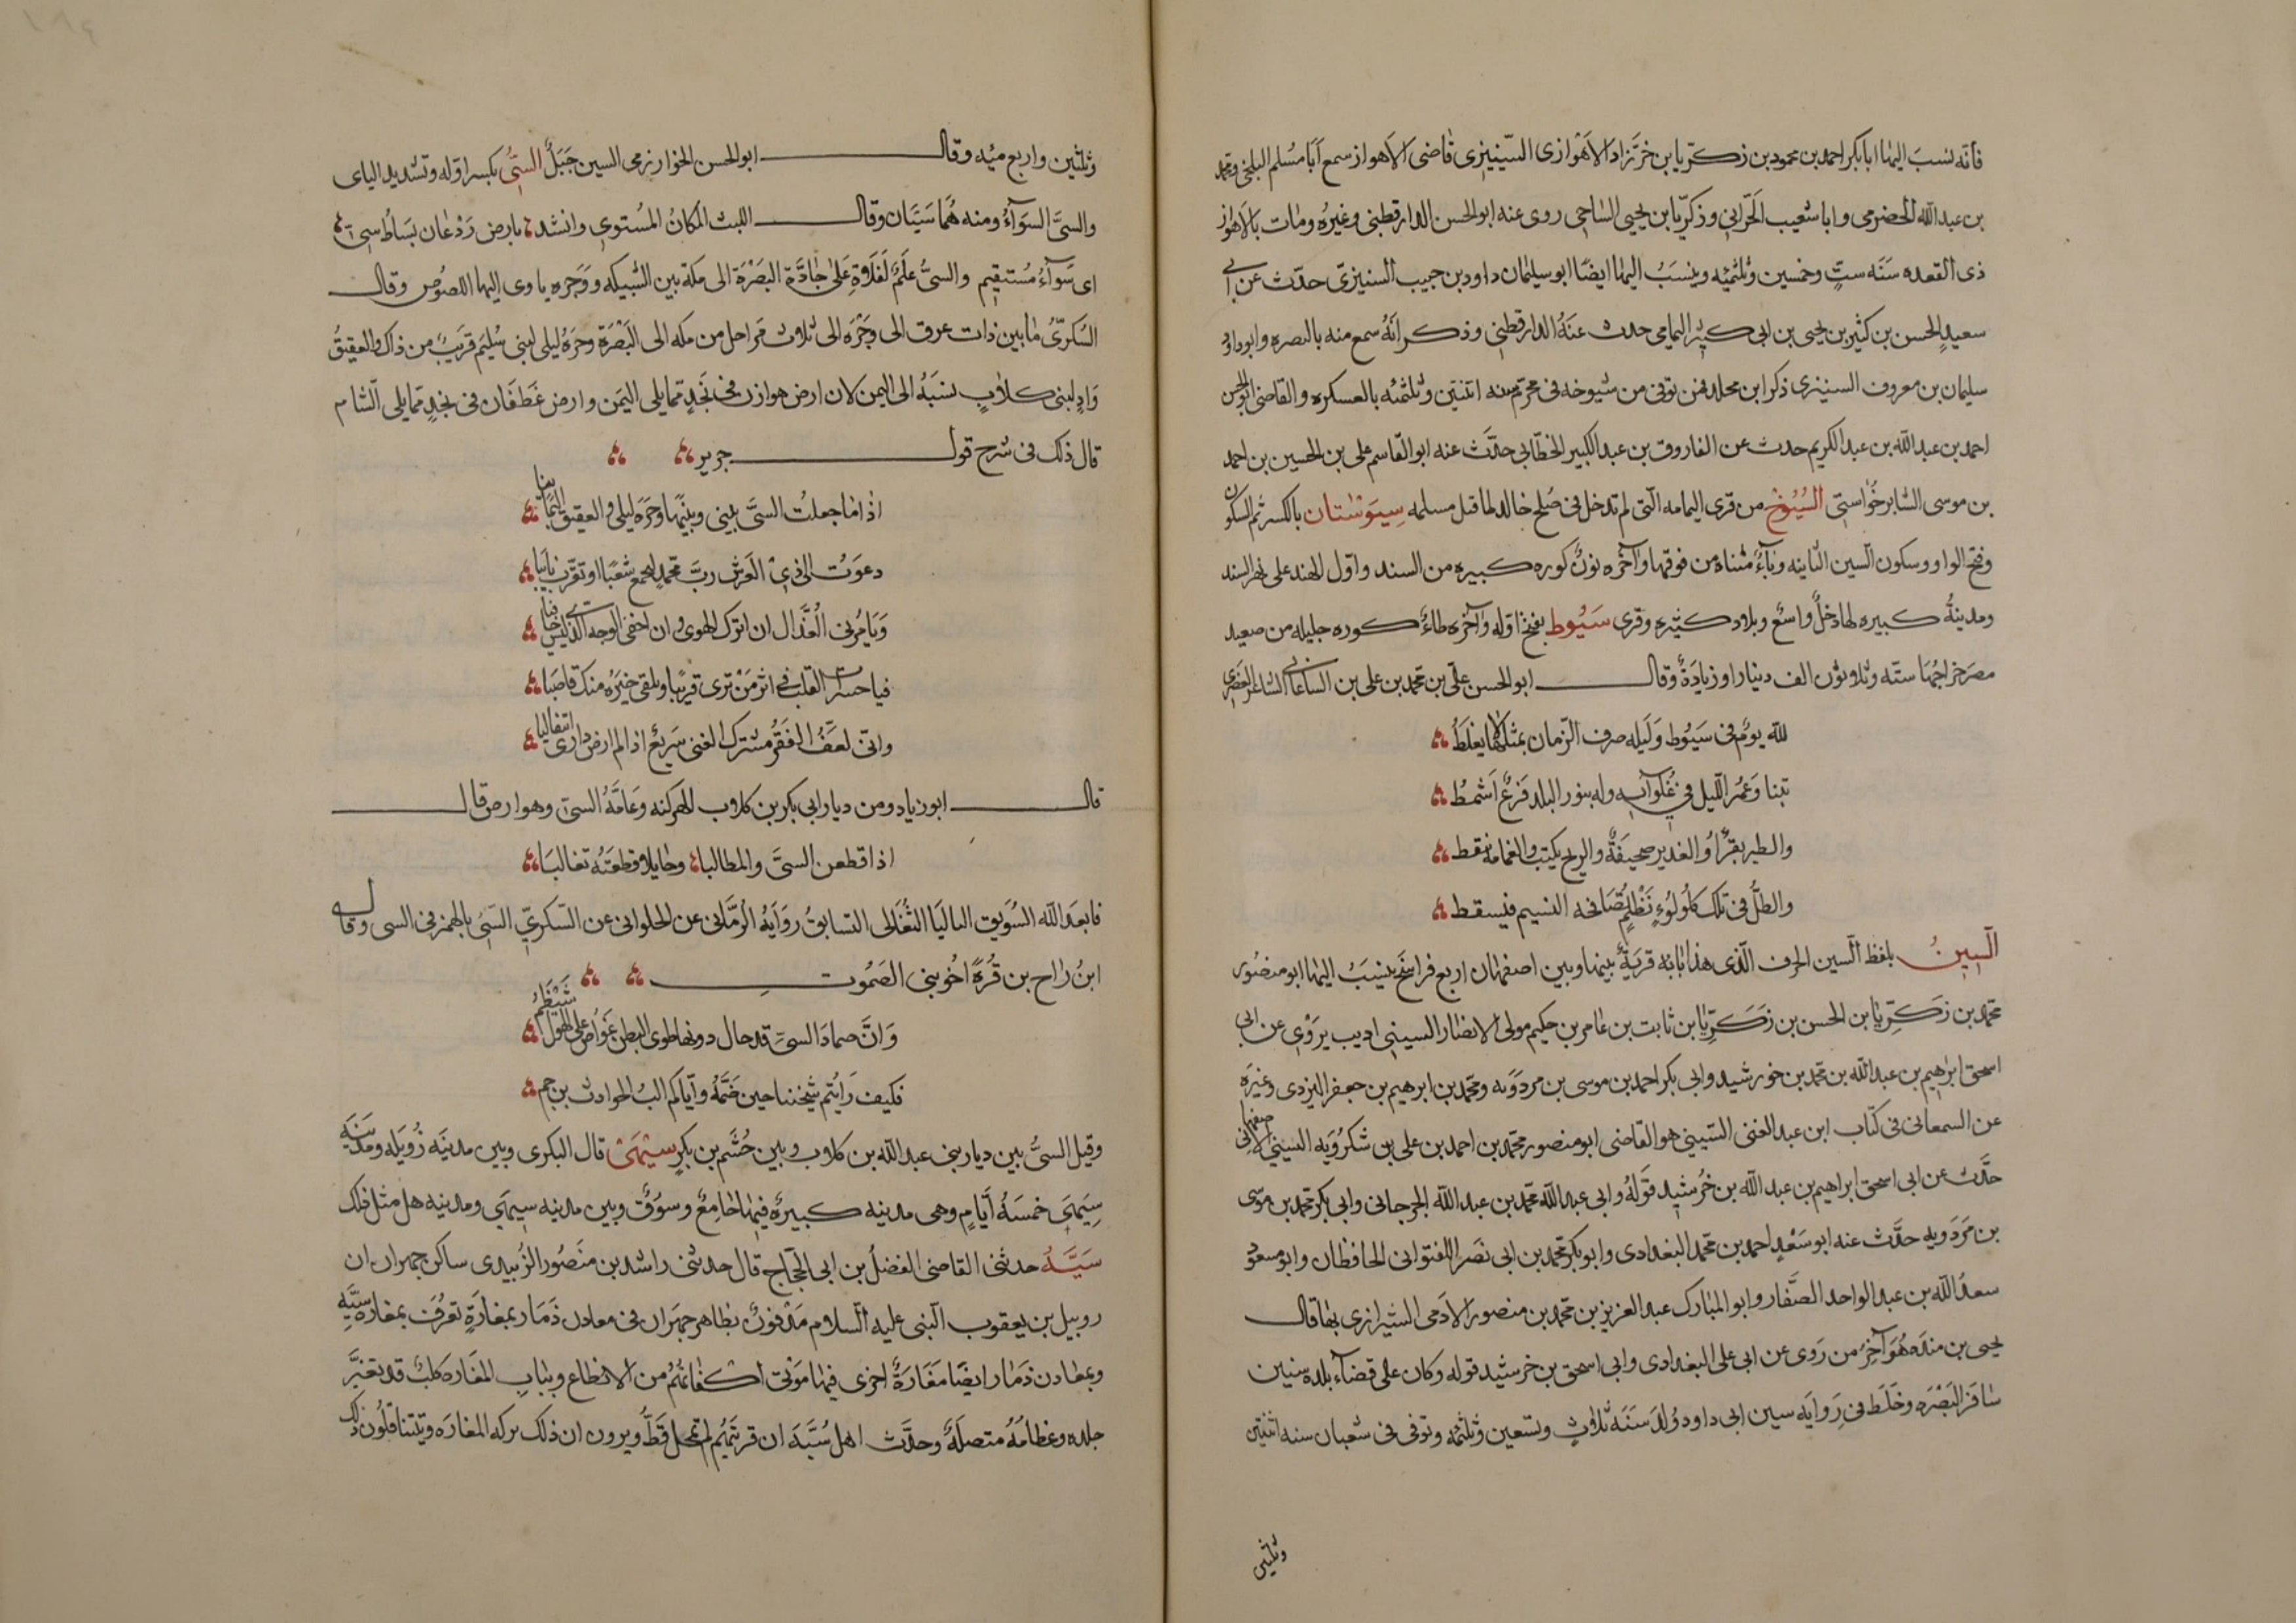 فانه نسب اليها ابا بكر احمد بن محمود بن زكريا بن خرزاد الاهوازى السينيزى قاضى الاهواز سمع ابا مسلم البلخى ومحمد
بن عبد الله الحضرمى وابا شعيب الحرانى وزكريا بن يحيى الساجى روى عنه ابو الحسن الدارقطنى وغيره ومات بالاهواز
ذى القعده سنه ست وخمسين وثلثمئه وينسب اليها ايضا ابو سليمان داود بن حبيب السنيزى حدث عن ابى
سعيد الحسن بن كثير بن يحيى بن ابى كثير اليمامى حدث عنه الدارقطنى وذكر انه سمع منه بالبصره وابو داود
سليمان بن معروف السنيزى ذكر ابن مخلد فمن توفى من شيوخه فى محرم سنه اثنتين وثلثمئه بالعسكره والقاضى ابو الحسن
احمد بن عبد الله بن عبد الكريم حدث عن الفاروق بن عبد الكبير الخطابى حدث عنه ابو القاسم على بن الحسين بن احمد
بن موسى الشابرخواستى السيوخ من قرى اليمامه التى لم تدخل فى صلح خالد لما قتل مسلمه سيوستان بالكسر ثم السكون
وفتح الواو وسكون السين الثانيه وتاء مثناه من فوقها وآخره نون كوره كبيره من السند واول الهند على نهر السند
ومدينة كبيره لها دخل واسع وبلاد كثيره وقرى سيوط بفتح اوله وآخره طاء كوره جليله من صعيد
مصر خراجها سته وثلاثون الف دينار او زيادة وقال ابو الحسن على بن محمد بن على بن الساعاتى الشاعر
لله يوم فى سيوط وليله صرف الزمان بمثلها لا يغلط
بتنا وعمر الليل فى غلوآيه وله بنور البلد فرع اشمط
والطير يقرأ والغدير صحيفة والريح يكتب والغمامة تنقط
والطل فى تلك كلؤلؤ نظم تصافحه النسيم فيسقط
السين بلفظ السين الحرف الذى هذا بابه قرية بينها وبين اصفهان اربع فراسخ ينسب اليها ابو منصور
محمد بن زكريا بن الحسن بن زكريا بن ثابت بن عامر بن حكيم مولى الانصار السينى اديب يروى عن ابى
اسحق ابرهيم بن عبد الله بن محمد بن خورشيد وابى بكر احمد بن موسى بن مردويه ومحمد بن ابرهيم بن جعفر اليزدى وغيره
عن السمعانى فى كتاب ابن عبد الغنى السينى هو القاضى ابو منصور محمد بن احمد بن على بن شكرويه السينى الاصفهانى
حدث عن ابى اسحق ابراهيم بن عبد الله بن خرشيد قوله وابى عبد الله محمد بن عبد الله الجرجانى وابى بكر محمد بن موسى
بن مردويه حدث عنه ابو سعد احمد بن محمد البغدادى وابو بكر محمد بن ابى نصر اللفتوانى الحافظان وابو مسعود
سعد الله بن عبد الواحد الصفار وابو المبارك عبد العزيز بن محمد بن منصور الادمى الشيرازى بها قال
يحيى بن منده هو آخر من روى عن ابى على البغدادى وابى اسحق بن خرشيد قوله وكان على قضاء بلده سنين
سافر البصره وخلط فى روايه سنن ابى داود ولد سنه ثلاث وتسعين وثلثمئه وتوفى فى شعبان سنه اثنتين
وثلثين
وثلثين واربع مئه وقال ابو الحسن الخوارزمى السين جبل السى بكسر اوله وتشديد الياى
والسى السوآء ومنه هما سيان وقال الليث المكان المستوى وانشد بارض ردعان بساط سى
اى سوآء مستقيم والسى علم لفلاة على جادة البصرة الى مكة بين الشبيكه ووجره ياوى اليها اللصوص وقال
السكرى ما بين ذات عرق الى وجره الى ثلاث مراحل من مكه الى البصرة وحره ليلى لبنى سليم قريب من ذاك والعقيق
واد لبنى كلاب نسبه الى اليمن لان ارض هوازن فى نجد مما يلى اليمن وارض غطفان فى نجد مما يلى الشام
قال ذلك فى شرح قول جرير
اذا ما جعلت السى بينى وبينها وحره ليلى والعقيق اليمانيا
دعوت الى ذى العرش رب محمد ليجمع شعبا او تقرب نايبا
ويامرنى العذال ان اترك الهوى وان اخفى الوجد الذى ليس خافيا
فيا حسرات القلب فى اثر من ترى قريبا وتلقى خيره منك قاصيا
وانى لعف الفقر مشترك الغنى سريع اذا لم ارض دارى انتقاليا
قال ابو زياد ومن ديار ابى بكر بن كلاب الهركنه وعامة السى وهو ارض قال
اذا قطعن السى والمطاليا وحايلا قطعنه تغاليا
فابعد الله السويق الباليا التغالى التسابق روايه الرمانى عن الحلوانى عن السكرى السئ بالهمز فى السى وقال
ابن راح بن قره اخو بنى الصموت
وان صماد السى قد حال دونها طوى البطن غواص على الهول شيظم
فكيف رايتم شيخنا حين ضمه واياكم الب الحوادث بن جم
وقيل السى بين ديار بنى عبد الله بن كلاب وبين جشم بن بكر سيمى قال البكرى وبين مدينه زويله ومدينه
سيمى خمسه ايام وهى مدينه كبيره فيها جامع وسوق وبين مدينه سيمى ومدينه هل مثل فلك
سيه حدثنى القاضى الفضل بن ابى الحجاج قال حدثنى راشد بن منصور الزبيدى ساكن جهران ان
روبيل بن يعقوب النبى عليه السلام مدفون بظاهر جهران فى معادل ذمار بمغارة تعرف بمغاره سيه
وبمعادن ذمار ايضا مغارة اخرى فيها موتى اكفانهم من الانطاع وبباب المغاره كلب قد تغير
جلده وعظامه متصلة وحدث اهل سيه ان قريتهم لم تمحل قط ويرون ان ذلك بركه المغاره ويتناقلون ذلك